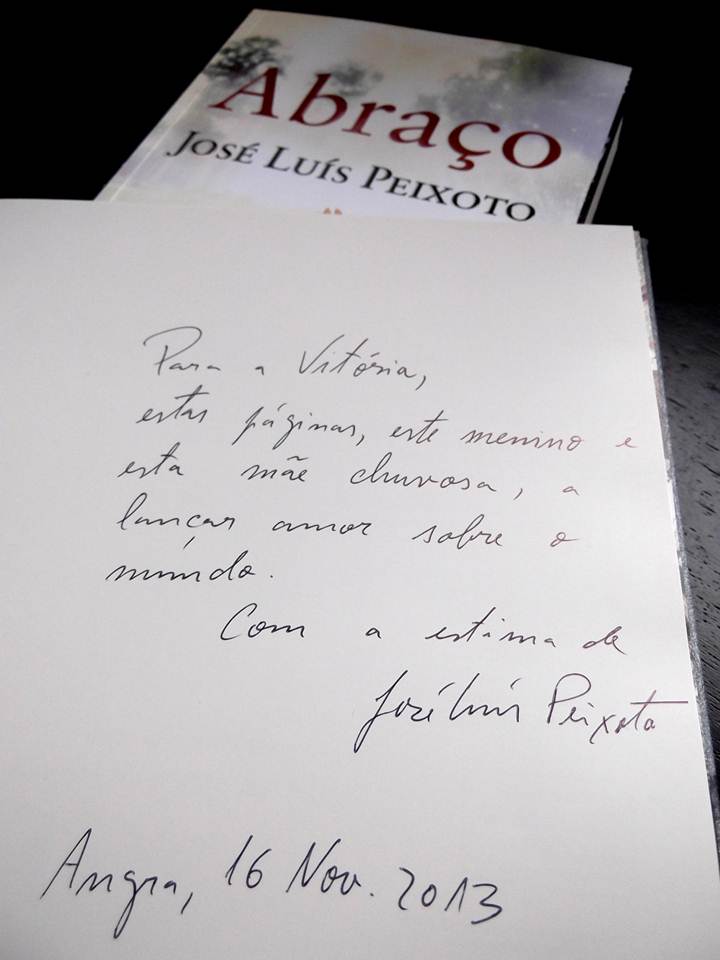 Abraço
José Luís Peixoto
Para a Vitória,
estas páginas, este menino e
esta mãe chuvosa, a
lançar amor sobre o
mundo.
Com a estima de
José Luís Peixoto
Angra, 16 Nov. 2013